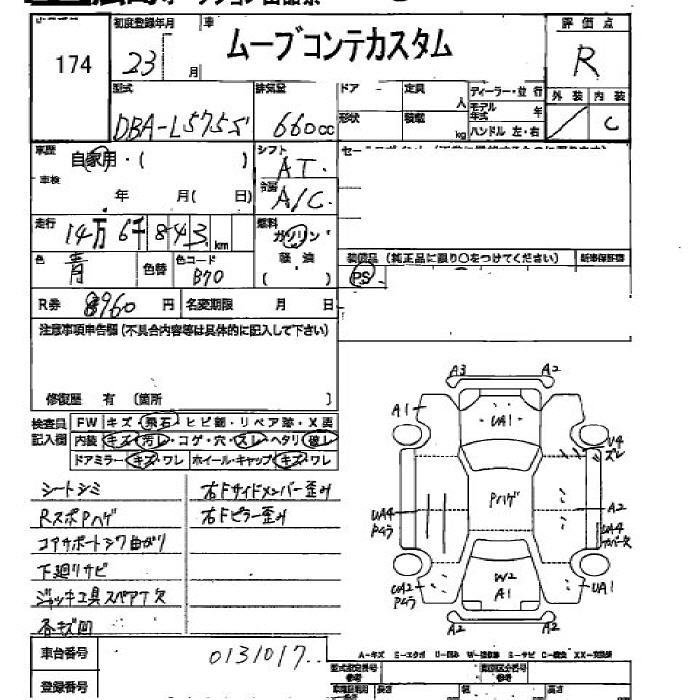 174
初度登録年月
23 月
車
ムーブコンテカスタム
評価点
R
外装 内装
C
型式
DBA-L575S
排気量
660cc
ドア
定員
人
形状
積載
kg
ディーラー・並行
モデル年式 年
ハンドル 左・右
車歴
自家用・( )
車検
年 月( 日)
シフト
AT.
冷房
A/C
走行
14万 6千 843 km
燃料
ガソリン
軽油
( )
色
青
色替
色コード
B70
装備品 (純正品に限り○をつけてください)
新車保証書
PS
R券 8960 円
名変期限 月 日
注意事項申告欄(不具合内容等は具体的に記入して下さい)
修復歴 有 〔箇所 〕
検査員記入欄
FW キズ・飛石・ヒビ割・リペア跡・X 要
内装 キズ・汚レ・コゲ・穴・スレ・ヘタリ・破レ
ドアミラー キズ・ワレ ホイール・キャップ キズ・ワレ
シートシミ
右Fサイドメンバー歪み
RスポPハゲ
右Fピラー歪み
コアサポートシワ曲がり
下廻りサビ
ジャッキ工具スペアT欠
各キズ凹
A3 A2
A1 UA1 U4
スレ
UA4
Pムラ
Pハゲ
A2
UA4
UA2
Pムラ
W2
A1
UA1
A2 A2
車台番号 0131017
登録番号